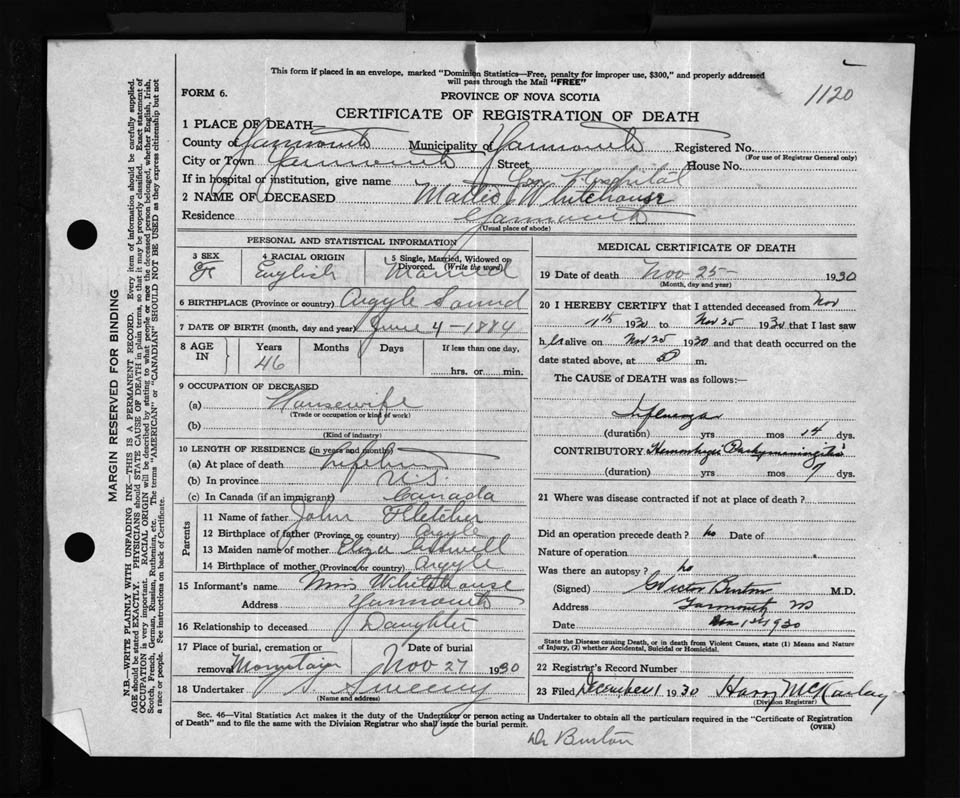 This form if placed in an envelope, marked "Dominion Statistics—Free, penalty for improper use, $300," and properly addressed
will pass through the Mail "FREE"
FORM 6.
PROVINCE OF NOVA SCOTIA
1120
CERTIFICATE OF REGISTRATION OF DEATH
1 PLACE OF DEATH—
County of Yarmouth Municipality of Yarmouth Registered No.
(For use of Registrar General only)
City or Town Yarmouth Street House No.
If in hospital or institution, give name Hospital
2 NAME OF DECEASED Whitehouse
Residence Yarmouth
(Usual place of abode)
PERSONAL AND STATISTICAL INFORMATION
3 SEX
F
4 RACIAL ORIGIN
English
5 Single, Married, Widowed or
Divorced. (Write the word)
Married
6 BIRTHPLACE (Province or country) Argyle Sound
7 DATE OF BIRTH (month, day and year) June 4 - 1884
8 AGE IN
Years Months Days If less than one day,
46
hrs. or min.
9 OCCUPATION OF DECEASED
(a) Housewife
(Trade or occupation or kind of work)
(b)
(Kind of industry)
10 LENGTH OF RESIDENCE (in years and months)
(a) At place of death
(b) In province
(c) In Canada (if an immigrant) Canada
Parents
11 Name of father John Fletcher
12 Birthplace of father (Province or country) Argyle
13 Maiden name of mother
14 Birthplace of mother (Province or country) Argyle
15 Informant's name Whitehouse
Address Yarmouth
16 Relationship to deceased Daughter
17 Place of burial, cremation or
removal
Date of burial
Nov 27 1930
18 Undertaker Sweeny
(Name and address)
MEDICAL CERTIFICATE OF DEATH
19 Date of death Nov 25 1930
(Month, day and year)
20 I HEREBY CERTIFY that I attended deceased from Nov
1930 to Nov 25 1930 that I last saw
h er alive on Nov 25 1930 and that death occurred on the
date stated above, at m.
The CAUSE of DEATH was as follows:—
Influenza
(duration) yrs mos 14 dys.
CONTRIBUTORY. Hemorrhagic Pachymeningitis
(duration) yrs mos 7 dys.
21 Where was disease contracted if not at place of death?
Did an operation precede death? no Date of
Nature of operation
Was there an autopsy? no
(Signed) Burton M.D.
Address Yarmouth NS
Date 1930
State the Disease causing Death, or in death from Violent Causes, state (1) Means and Nature
of Injury, (2) whether Accidental, Suicidal or Homicidal.
22 Registrar's Record Number
23 Filed December 1 1930 Harry
(Division Registrar)
Sec. 46—Vital Statistics Act makes it the duty of the Undertaker or person acting as Undertaker to obtain all the particulars required in the "Certificate of Registration
of Death" and to file the same with the Division Registrar who shall issue the burial permit.
(OVER)
Dr Burton
MARGIN RESERVED FOR BINDING
N.B.—WRITE PLAINLY WITH UNFADING INK—THIS IS A PERMANENT RECORD. Every item of information should be carefully supplied.
AGE should be stated EXACTLY. PHYSICIANS should STATE CAUSE OF DEATH in plain terms, so that it may be properly classified. Exact statement of
OCCUPATION is very important. RACIAL ORIGIN will be described by stating to what people or race the deceased person belonged, whether English, Irish,
Scotch, French, German, Russian, Ruthenian, etc. The terms "AMERICAN" or "CANADIAN" SHOULD NOT BE USED as they express citizenship but not
a race or people. See instructions on back of Certificate.